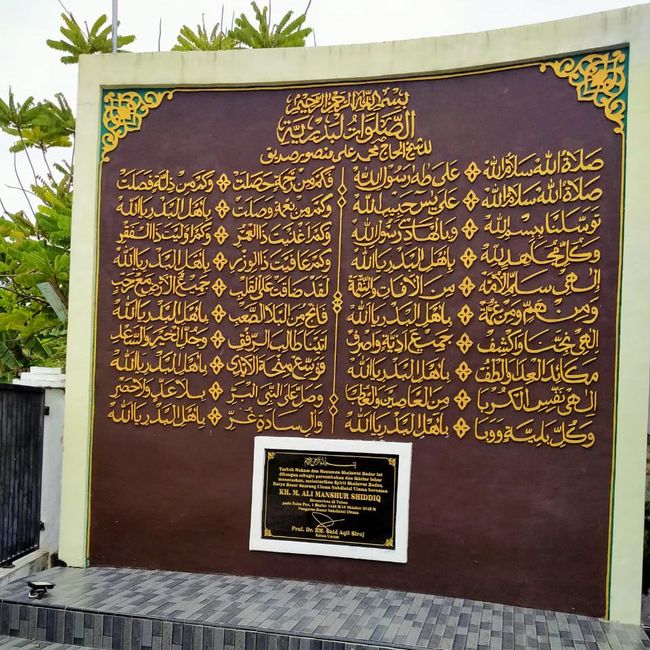 بسم الله الرحمن الرحيم
الصلوات البدرية
للشيخ الحاج محمد علي منصور صديق
صلاة الله سلام الله ❖ على طه رسول الله
صلاة الله سلام الله ❖ على يس حبيب الله
توسلنا ببسم الله ❖ وبالهادي رسول الله
وكل مجاهد لله ❖ باهل البدر يا الله
الهي سلم الامة ❖ من الافات والنقمة
ومن هم ومن غمة ❖ باهل البدر يا الله
الهي نجنا واكشف ❖ جميع اذية واصرف
مكائد العدا والطف ❖ باهل البدر يا الله
الهي نفس الكربا ❖ من العاصين والعطبا
وكل بلية ووبا ❖ باهل البدر يا الله
فكم من رحمة حصلت ❖ وكم من ذلة فصلت
وكم من نعمة وصلت ❖ باهل البدر يا الله
وكم اغنيت ذا العمر ❖ وكم اوليت ذا الفقر
وكم عافيت ذا الوزر ❖ باهل البدر يا الله
لقد ضاقت على القلب ❖ جميع الارض مع رحب
فانج من البلا الصعب ❖ باهل البدر يا الله
اتينا طالب الرفق ❖ وجل الخير والسعد
فوسع منحة الايدي ❖ باهل البدر يا الله
وصل على النبي البر ❖ بلا عد ولا حصر
وآل سادة غر ❖ باهل البدر يا الله
Taman Makam dan Monumen Shalawat Badar ini
dibangun sebagai persembahan dan ikhtiar luhur
meneruskan, melestarikan Spirit Shalawat Badar,
Karya Besar Seorang Ulama Nahdlatul Ulama bernama
KH. M. ALI MANSHUR SHIDDIQ
Diresmikan di Tuban
Pengurus Besar Nahdlatul Ulama
Prof. Dr. KH. Said Aqil Siroj
Ketua Umum